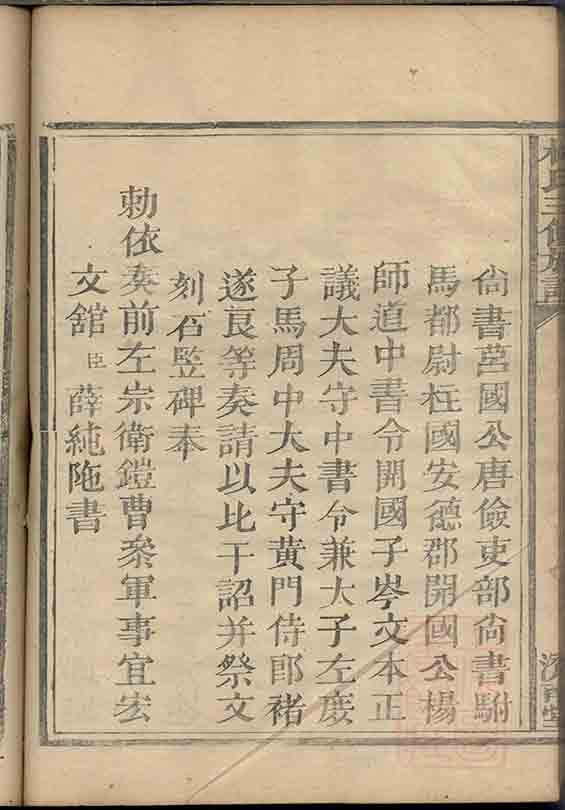 林氏三修族譜
尚書莒國公唐儉吏部尚書駙
馬都尉柱國安德郡開國公楊
師道中書令開國子岑文本正
議大夫守中書令兼大子左庶
子馬周中大夫守黃門侍郎褚
遂良等奏請以比干詔并祭文
刻石監碑奉
勅依奏前左宗衛鎧曹叅軍事宜宏
文舘臣薛純陁書